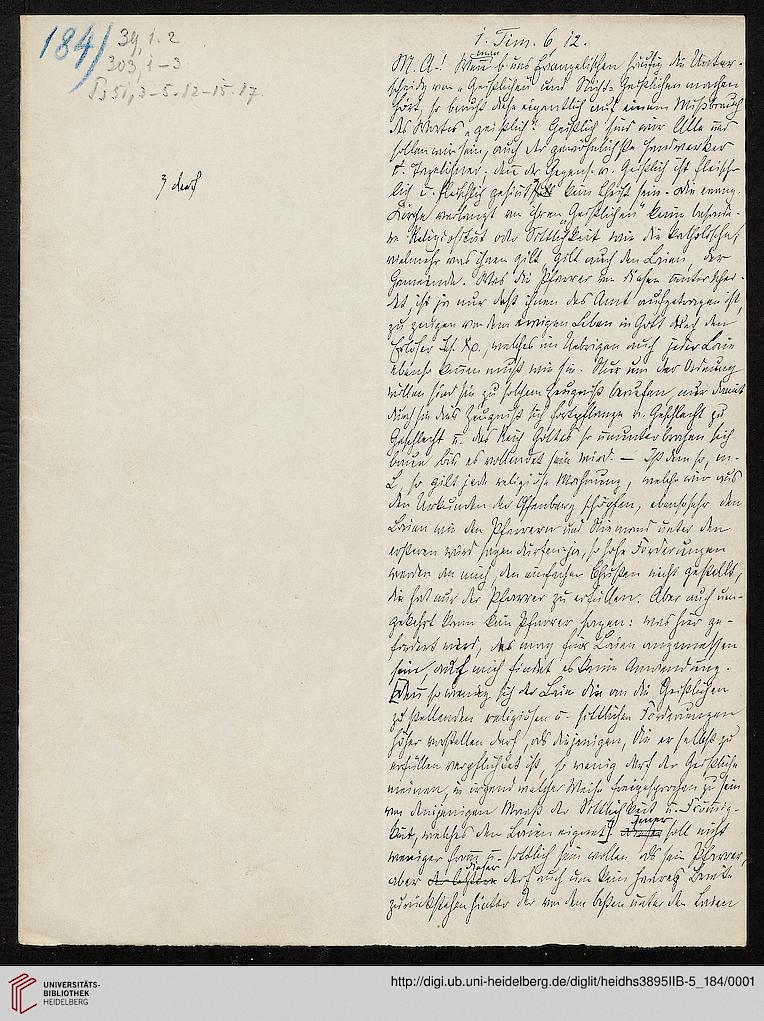 184)
39, 1. 2
303, 1-3
Ps 51, 3-5. 12-15. 17.
1. Tim. 6, 12.
M. A.! Wenn man b. uns Evangelischen häufig die Unter-
scheidung von „Geistlichen und Nicht-Geistlichen machen
hört, so beruht diese eigentlich auf einem Mißbrauch
des Wortes „geistlich“. Geistlich sind wir Alle und
sollen wir sein, auch der gewöhnlichste Handwerker
u. Tagelöhner. denn der Gegens. v. Geistlich ist fleisch-
lich u. fleischlich gesinnt soll kein Christ sein. Die evang.
Kirche verlangt von ihren „Geistlichen“ keine besonde-
re Religiosität oder Sittlichkeit wie die katholische,
vielmehr was ihnen gilt, gilt auch den Laien, der
Gemeinde. Was die Pfarrer von diesen unterschei-
det, ist ja nur daß ihnen das Amt aufgetragen ist,
zu zeugen von dem ewigen Leben in Gott durch den
Erlöser welches im Uebrigen auch jeder Laie
ebenso kennen muß wie sie. Nur um der Ordnung
willen sind sie zu solchem Zeugniß berufen, nur damit
durch sie dies Zeugniß sich fortpflanze v. Geschlecht zu
Geschlecht u. das Reich Gottes so ununterbrochen sich
baue bis es vollendet sein wird. — Ist dem so, m.
L, so gilt jede religiöse Mahnung, welche wir aus
den Urkunden der Offenbarg schöpfen, ebensosehr den
Laien wie den Pfarrern und Niemand unter den
ersteren wird sagen dürfen: ja, so hohe Forderungen
werden an mich, den einfachen Christen nicht gestellt,
die hat nur der Pfarrer zu erfüllen. Aber auch um-
gekehrt kann kein Pfarrer sagen: was hier ge-
fordert wird, das mag für Laien angemessen
sein, auf mich findet es keine Anwendung.
Denn so wenig sich der Laie die an die Geistlichen
zu stellenden religiösen u. sittlichen Forderungen
höher vorstellen darf, als diejenigen, die er selbst zu
erfüllen verpflichtet ist, so wenig darf der Geistliche
meinen, in irgend welcher Weise freigesprochen zu sein
von demjenigen Maaß der Sittlichkeit u. Frömmig-
keit, welches den Laien eignet. Jener soll nicht
weniger fromm u. sittlich sein wollen als sein Pfarrer,
aber dieser darf auch um kein Haares Breite
zurückstehen hinter der von dem besten unter den Laien
UNIVERSITÄTS-
BIBLIOTHEK
HEIDELBERG
http://digi.ub.uni-heidelberg.de/diglit/heidhs3895IIB-5_184/0001